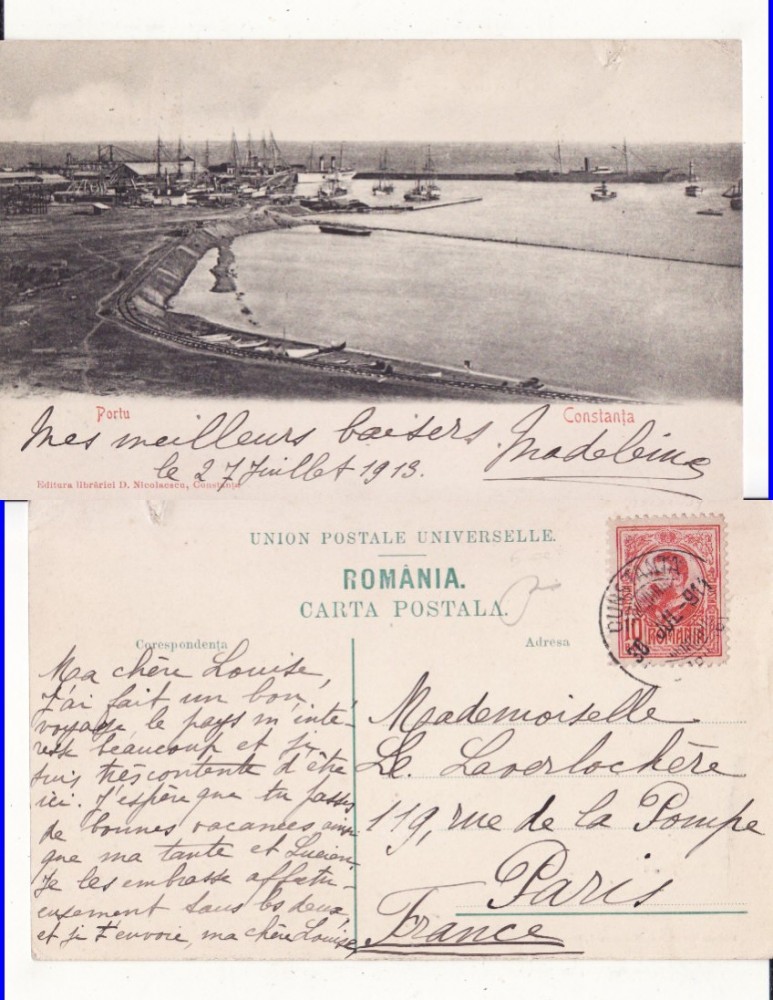 Portu
Constanţa
Mes meilleurs baisers. Madeleine
le 27 Juillet 1913.
Editura librăriei D. Nicolaescu, Constanţa
UNION POSTALE UNIVERSELLE.
ROMÂNIA.
CARTA POSTALA.
Corespondenţa
Adresa
10 ROMANIA 10
CONSTANTA
30 JUL 913
Ma chère Louise,
J'ai fait un bon
voyage le pays m'inté-
resse beaucoup et je
suis très contente d'être
ici. J'espère que tu passes
de bonnes vacances ainsi
que ma tante et Lucien.
Je les embrasse affectu-
eusement tous les deux,
et je t'envoie, ma chère Louise,
Mademoiselle
L. Laverlochère
119, rue de la Pompe
Paris
France